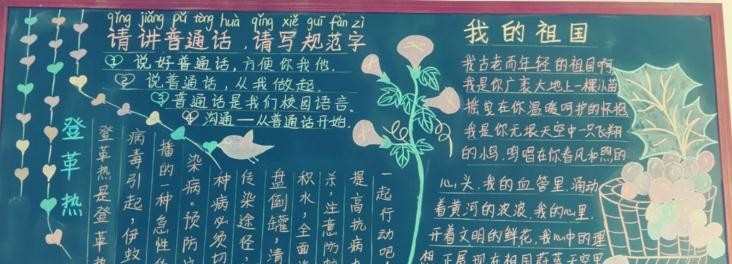 qǐng jiǎng pǔ tōng huà qǐng xiě guī fàn zì
请讲普通话，请写规范字
① 说好普通话，方便你我他.
② 说普通话，从我做起.
③ 普通话是我们校园语言.
④ 沟通—从普通话开始.
登革热
登革热是登革热
病毒引起，伊蚊
播的一种急性传
染病。预防
种病必须切
传染途径，
盘倒罐，清
积水，全面
杀，注意防
提高抗病力
一起行动吧
我的祖国
我古老而年轻的祖国啊
我是你广袤大地上一棵小苗
摇曳在你温暖呵护的怀抱
我是你无垠天空中一只飞翔
的小鸟，鸣唱在你春风和煦的
心头.我的血管里.涌动
着黄河的波浪.我的心里.
开着文明的鲜花，我心中的理
想正展现在祖国蔚蓝天空里